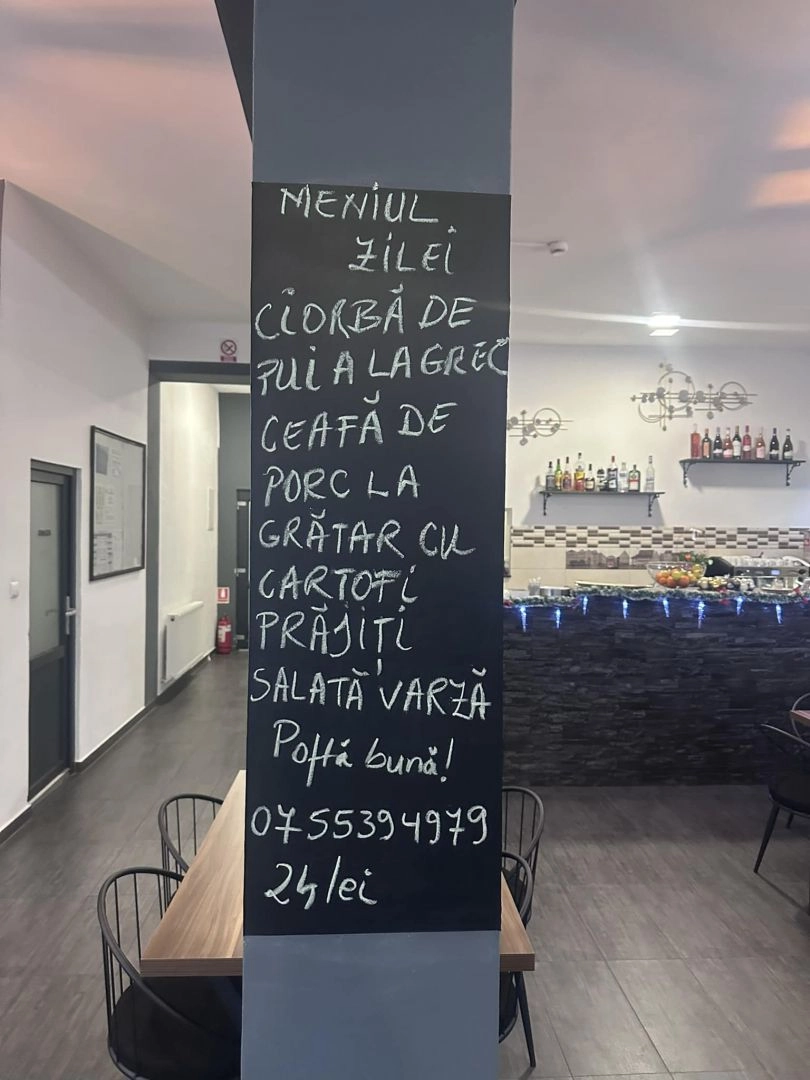 MENIUL
ZILEI
CIORBĂ DE
PUI A LA GREC
CEAFĂ DE
PORC LA
GRĂTAR CU
CARTOFI
PRĂJIȚI
SALATĂ VARZĂ
Poftă bună!
0755394979
24 lei